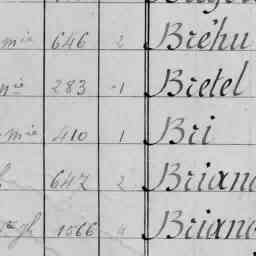 mie 646 2 Bréhu
nie 283 1 Bretel
mie 410 1 Bri
647 2 Briand
1066 4 Briand